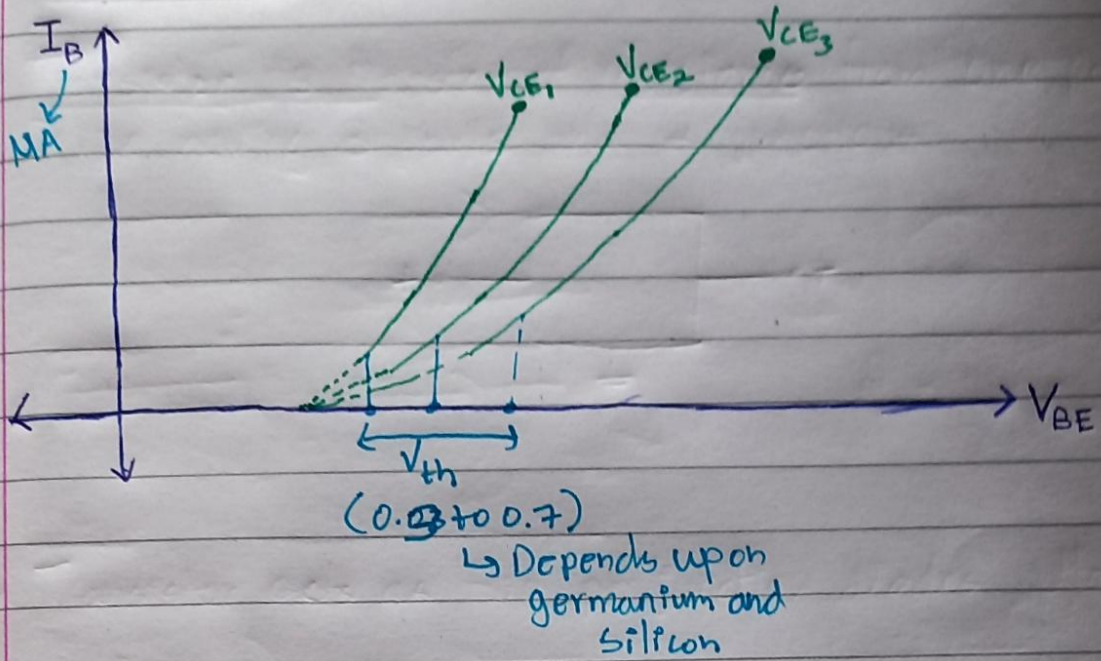 I_B
MA
V_CE₁
V_CE₂
V_CE₃
V_BE
V_th
(0. to 0.7)
↳ Depends upon
germanium and
silicon